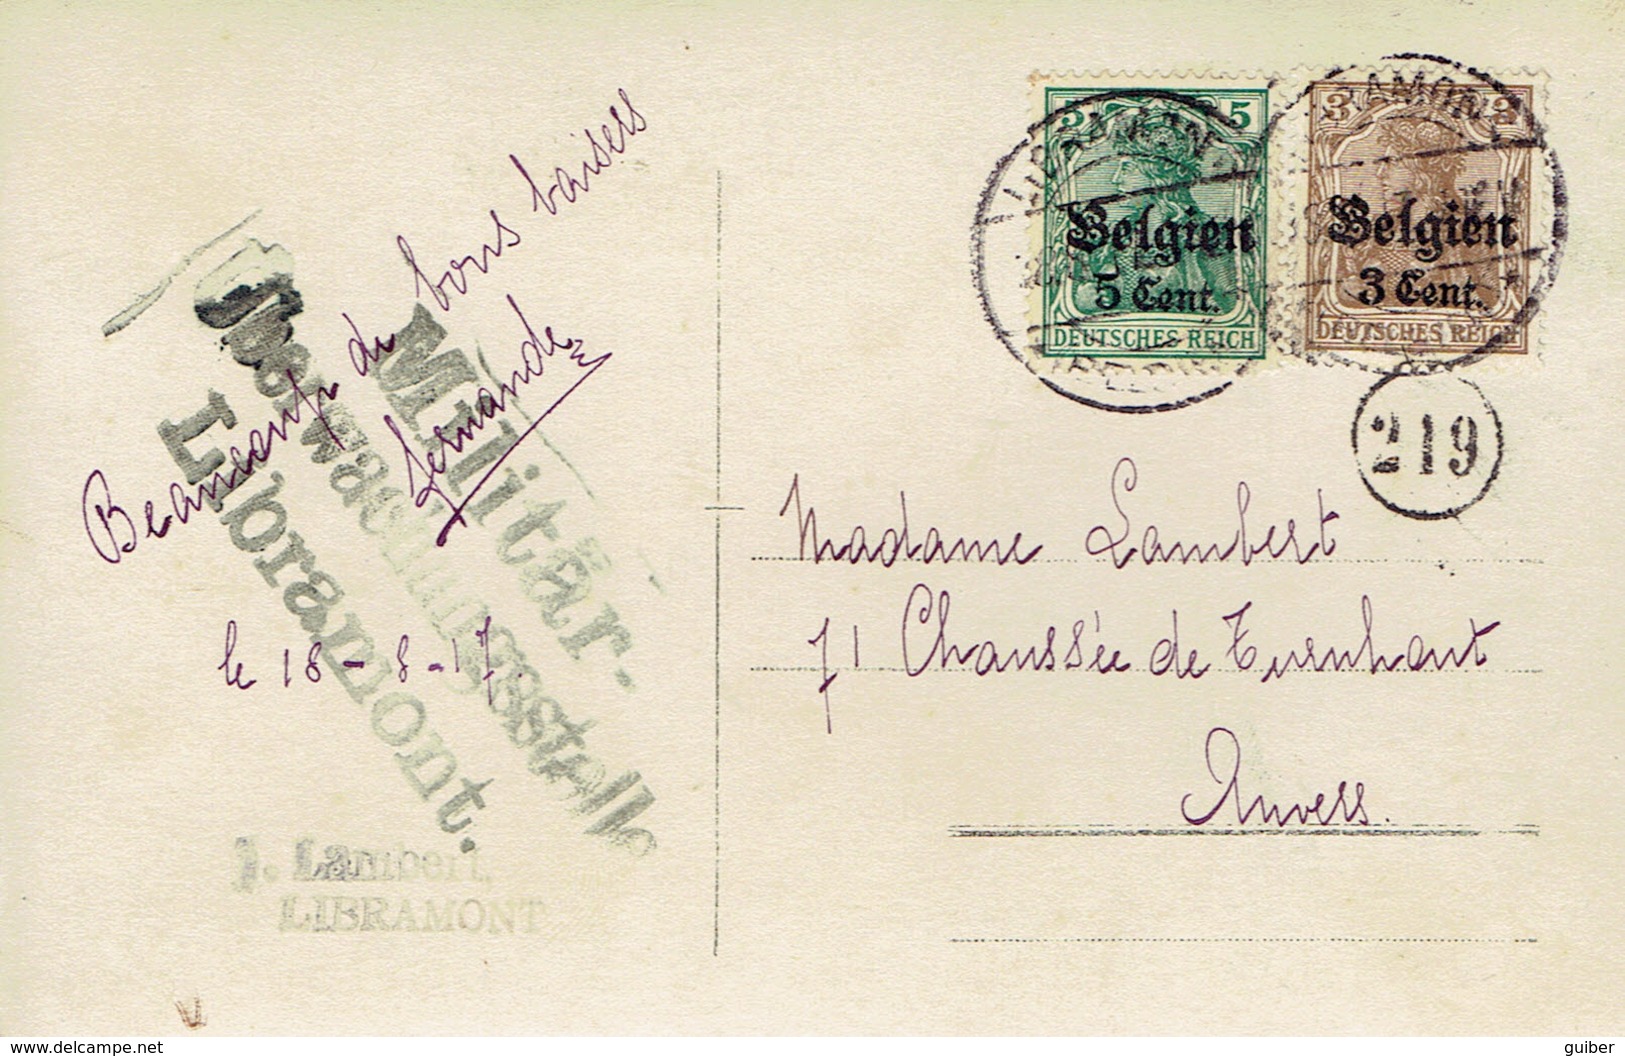 Beaucoup de bons baisers
Fernande
le 18-8-17.
Militär-
Überwachungsstelle
Libramont.
J. Lambert,
LIBRAMONT
5 5
Belgien
5 Cent.
DEUTSCHES REICH
3 3
Belgien
3 Cent.
DEUTSCHES REICH
LIBRAMONT
219
Madame Lambert
71 Chaussée de Turnhout
Anvers.
www.delcampe.net
guiber